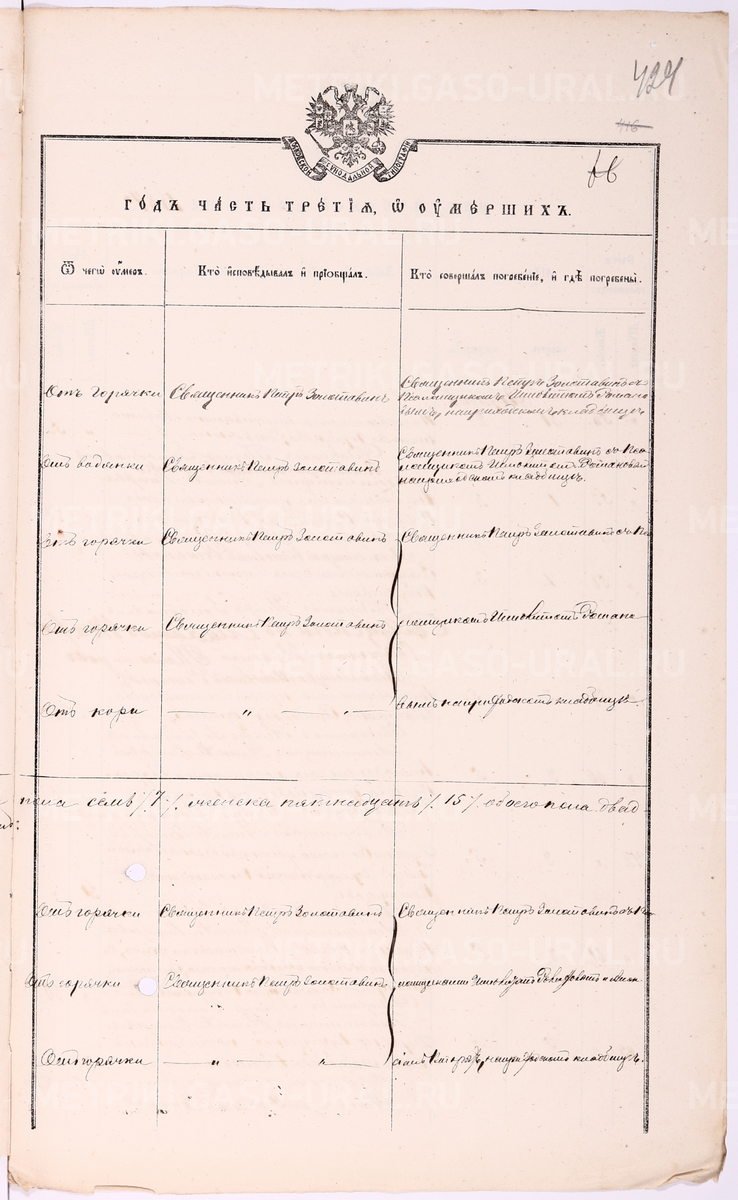 METRIKI.GASO-URAL.RU
424
416
МОСКОВСКОЙ СѴНОДАЛЬНОЙ ТѴПОГРАФІИ
ГО́ДЪ ЧА́СТЬ ТРЕ́ТІѦ, Ѿ ОУ҆МЕ́РШИХЪ.
Ѿ чегѡ̀ оу҆́меръ.
Кто̀ и҆сповѣ́дывалъ и҆ прїѡбща́лъ.
Кто̀ соверша́лъ погребе́нїе, и҆ гдѣ̀ погребены̀.
Отъ горячки
Священникъ Петръ Золотавинъ
Священникъ Петръ Золотавинъ съ
Псаломщикомъ Романо
вымъ, на приходскомъ кладбищѣ
Отъ водянки
Священникъ Петръ Золотавинъ
Священникъ Петръ Золотавинъ съ Пса
ломщикомъ Романовымъ
на приходскомъ кладбищѣ.
Отъ горячки
Священникъ Петръ Золотавинъ
Священникъ Петръ Золотавинъ съ Пса
Отъ горячки
Священникъ Петръ Золотавинъ
ломщикомъ Романо
Отъ кори
— „ — „ —
вымъ на приходскомъ кладбищѣ
пола семь /7/. женска пятнадцать /. 15 /. обоего пола двад
Отъ горячки
Священникъ Петръ Золотавинъ
Священникъ Петръ Золотавинъ съ Пса
Отъ горячки
Священникъ Петръ Золотавинъ
ломщиками
Отъ горячки
— „ — „ —
на приходскомъ кладбищѣ.